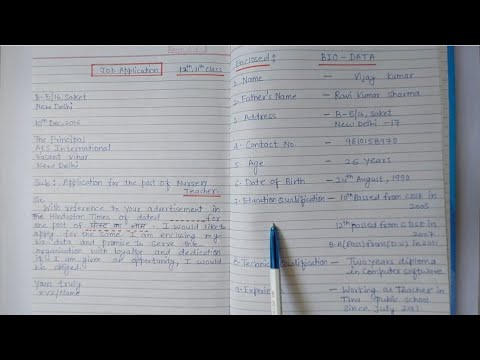 Job Application
12th, 11th Class
B-5/16, Saket
New Delhi
10th Dec, 2016
The Principal
AKS International
Vasant Vihar
New Delhi
Sub: Application for the post of Nursery
Teacher.
Sir
With reference to your advertisement in
the Hindustan Times of dated for
the post of पोस्ट का नाम. I would like to
apply for the same. I am enclosing my
bio data and promise to serve the
organisation with loyalty and dedication
if I am given an opportunity, I would
be obliged.
Yours truly
XYZ/Name
Enclosed:
BIO-DATA
1. Name - Vijay Kumar
2. Father's Name - Ravi Kumar Sharma
3. Address - B-5/16, Saket
New Delhi -17
4. Contact No. -
5. Age - 26 years
6. Date of Birth - August, 1990
7. Education Qualification - 10th Passed from CBSE in
2005
12th passed from CBSE in
2007
B.A (Pass) from (D.U) in 2011
8. Technical Qualification - Two years diploma
in Computer software
9. Experie - Working as Teacher in
Tiny public school
since July 2011